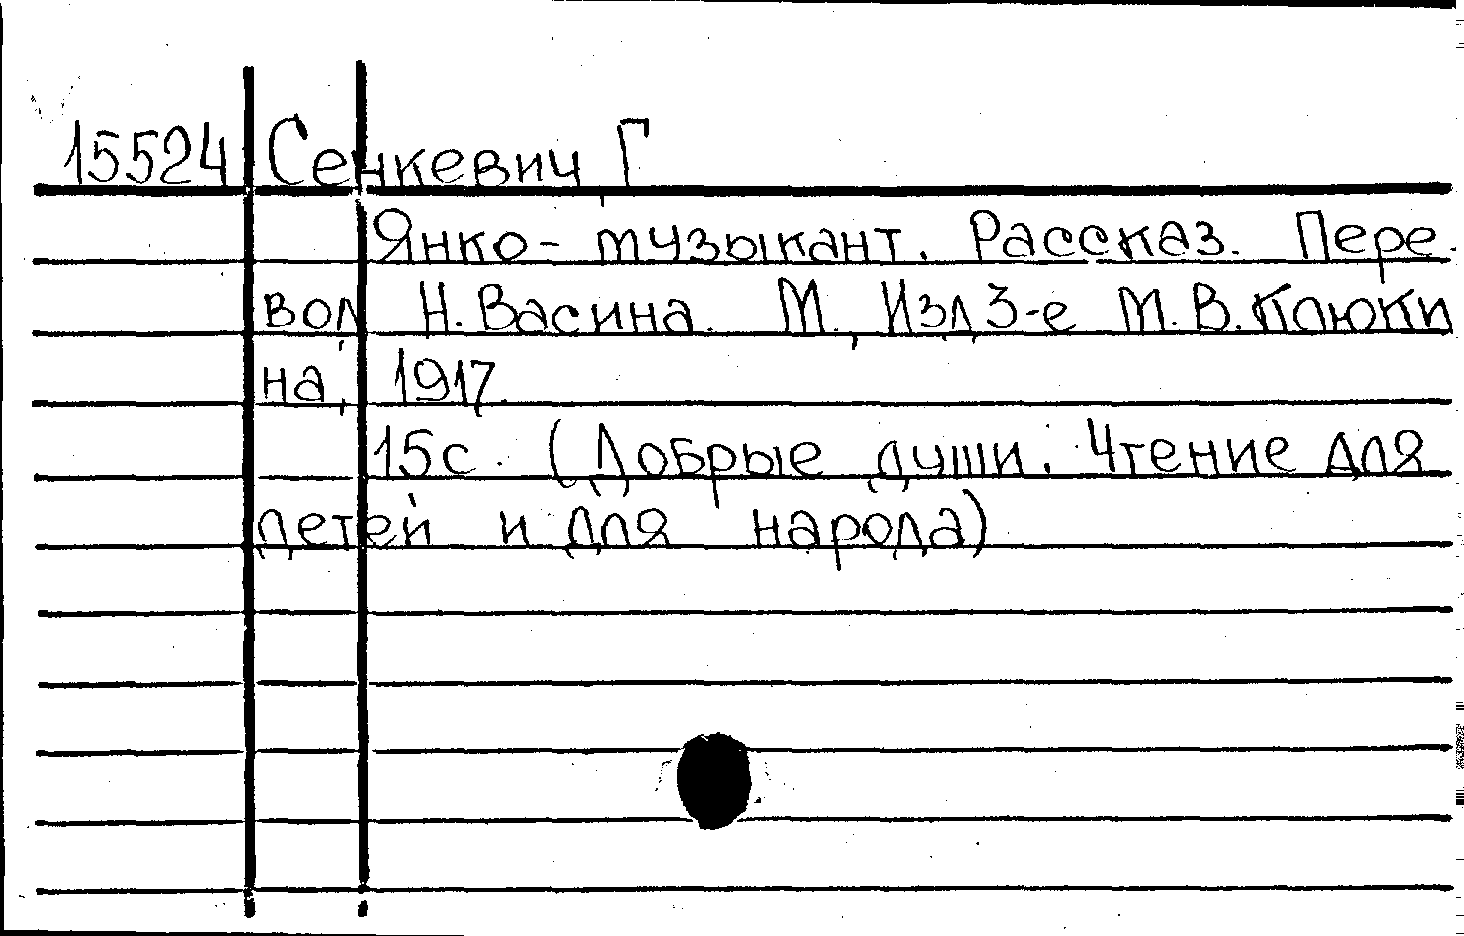 15524 Сенкевич Г
Янко-музыкант. Рассказ. Пере-
вод Н. Васина. М., Изд 3-е М.В. Клюки
на, 1917.
15с. (Добрые души. Чтение для
детей и для народа)